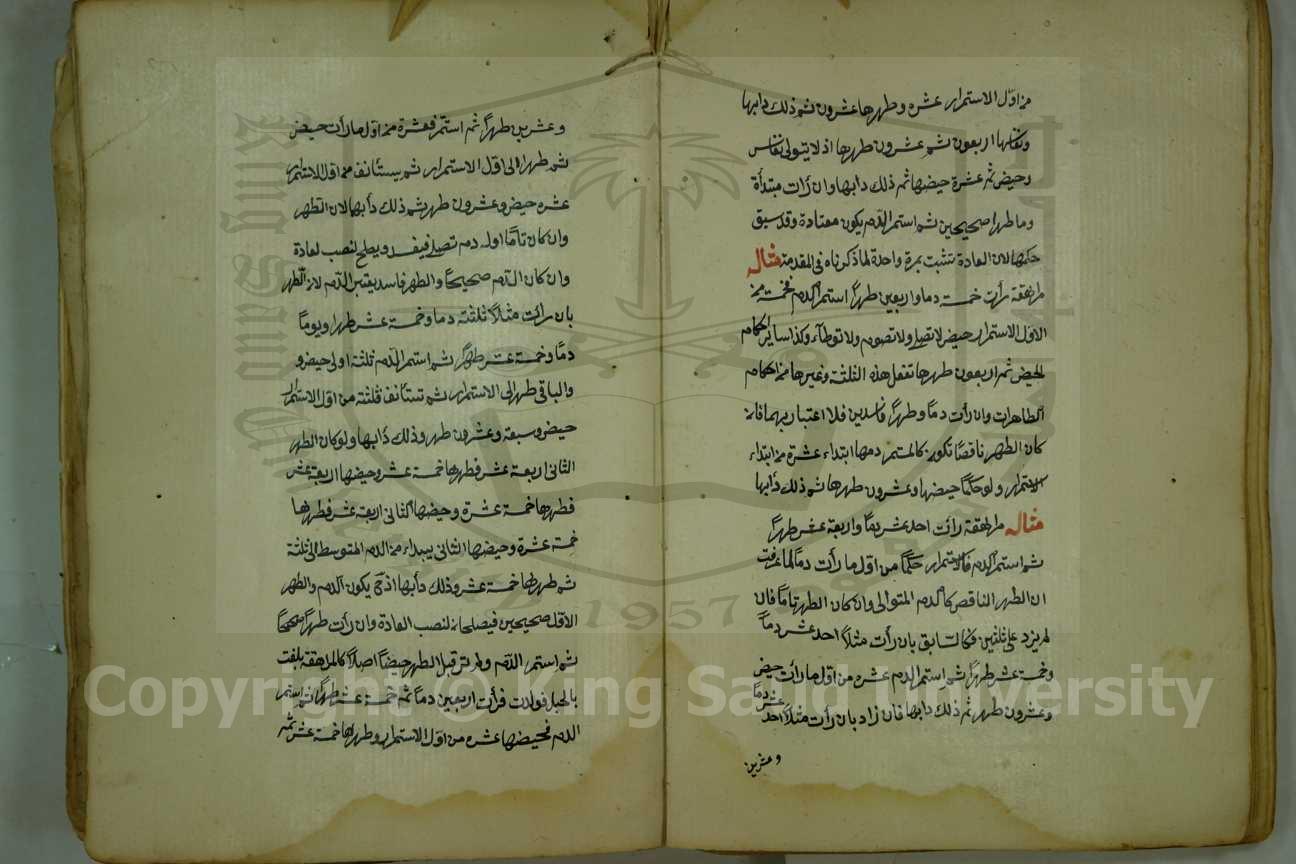 من اول الاستمرار عشرة وطهرها عشرون ثم ذلك دابها
ونفاسها اربعون ثم عشرون طهرها اذ لا يتوالى نفاس
وحيض ثم عشرة حيضها ثم ذلك دابها وان رأت مبتدأة
وما طهرا صحيحين ثم استمر الدم يكون معتادة وقد سبق
حكمها لان العادة تثبت بمرة واحدة لما ذكرناه في المقدمة مثاله
مراهقة رأت خمسة دما واربعين طهرا استمر الدم فخمسة من
الاول الاستمرار حيض لا تصلي ولا تصوم ولا توطاء وكذا ساير احكام
الحيض ثم اربعون طهرها تفعل هذه الثلثة وغيرها من احكام
الطاهرات وان رأت دما وطهرا فاسدين فلا اعتبار بهما فان
كان الطهر ناقصا تكون كالمستمر دمها ابتداء عشرة من ابتداء
الاستمرار ولو حكما حيضها وعشرون طهرها ثم ذلك دأبها
مثاله مراهقة رائت احد عشر يوما واربعة عشر طهرا
ثم استمر الدم فالاستمرار حكما من اول ما رأت دما لما عرفت
ان الطهر الناقص كالدم المتوالى وان كان الطهر تاما فان
لم يزد على ثلثين فكالسابق بان رأت مثلا احد عشر دما
وخمسة عشر طهرا ثم استمر الدم عشرة من اول ما رأت حيض
وعشرون طهر ثم ذلك دابها فان زاد بان رأت مثلا احد عشر دما
وعشرين
وعشرين طهرا ثم استمر فعشرة من اول ما رأت حيض
ثم طهر الى اول الاستمرار ثم يستأنف من اول الاستمرار
عشرة حيض وعشرون طهر ثم ذلك دأبها لان الطهر
وان كان تاما اوله دم تصلي فيفسد ويصلح لنصب العادة
وان كان الدم صحيحا والطهر فاسد يعتبر الدم لا الطهر
بان رأت مثلا ثلثة دما وخمسة عشر طهرا ويوما
دما وخمسة عشر طهرا ثم استمر الدم ثلثة اولى حيض و
والباقي طهر الى الاستمرار ثم تستأنف فثلثة من اول الاستمرار
حيض وسبعة وعشرون طهر وذلك دأبها ولو كان الطهر
الثاني اربعة عشر فطهرها خمسة عشر وحيضها اربعة عشر
فطهرها خمسة عشرة وحيضها الثاني اربعة عشر فطهرها
خمسة عشرة وحيضها الثاني يبداء من الدم المتوسط الى ثلثة
ثم طهرها خمسة عشر وذلك دأبها اذ ح يكون الدم والطهر
الاول صحيحين فيصلحان لنصب العادة وان رأت طهرا صحيحا
ثم استمر الدم ولم تر قبل الطهر حيضا اصلا كالمراهقة بلغت
بالحبل فولدت فرأت اربعين دما ثم خمسة عشر طهرا ثم استمر
الدم فحيضها عشرة من اول الاستمرار وطهرها خمسة عشر ثم
King Saud
1957
Copyright © King Saud University